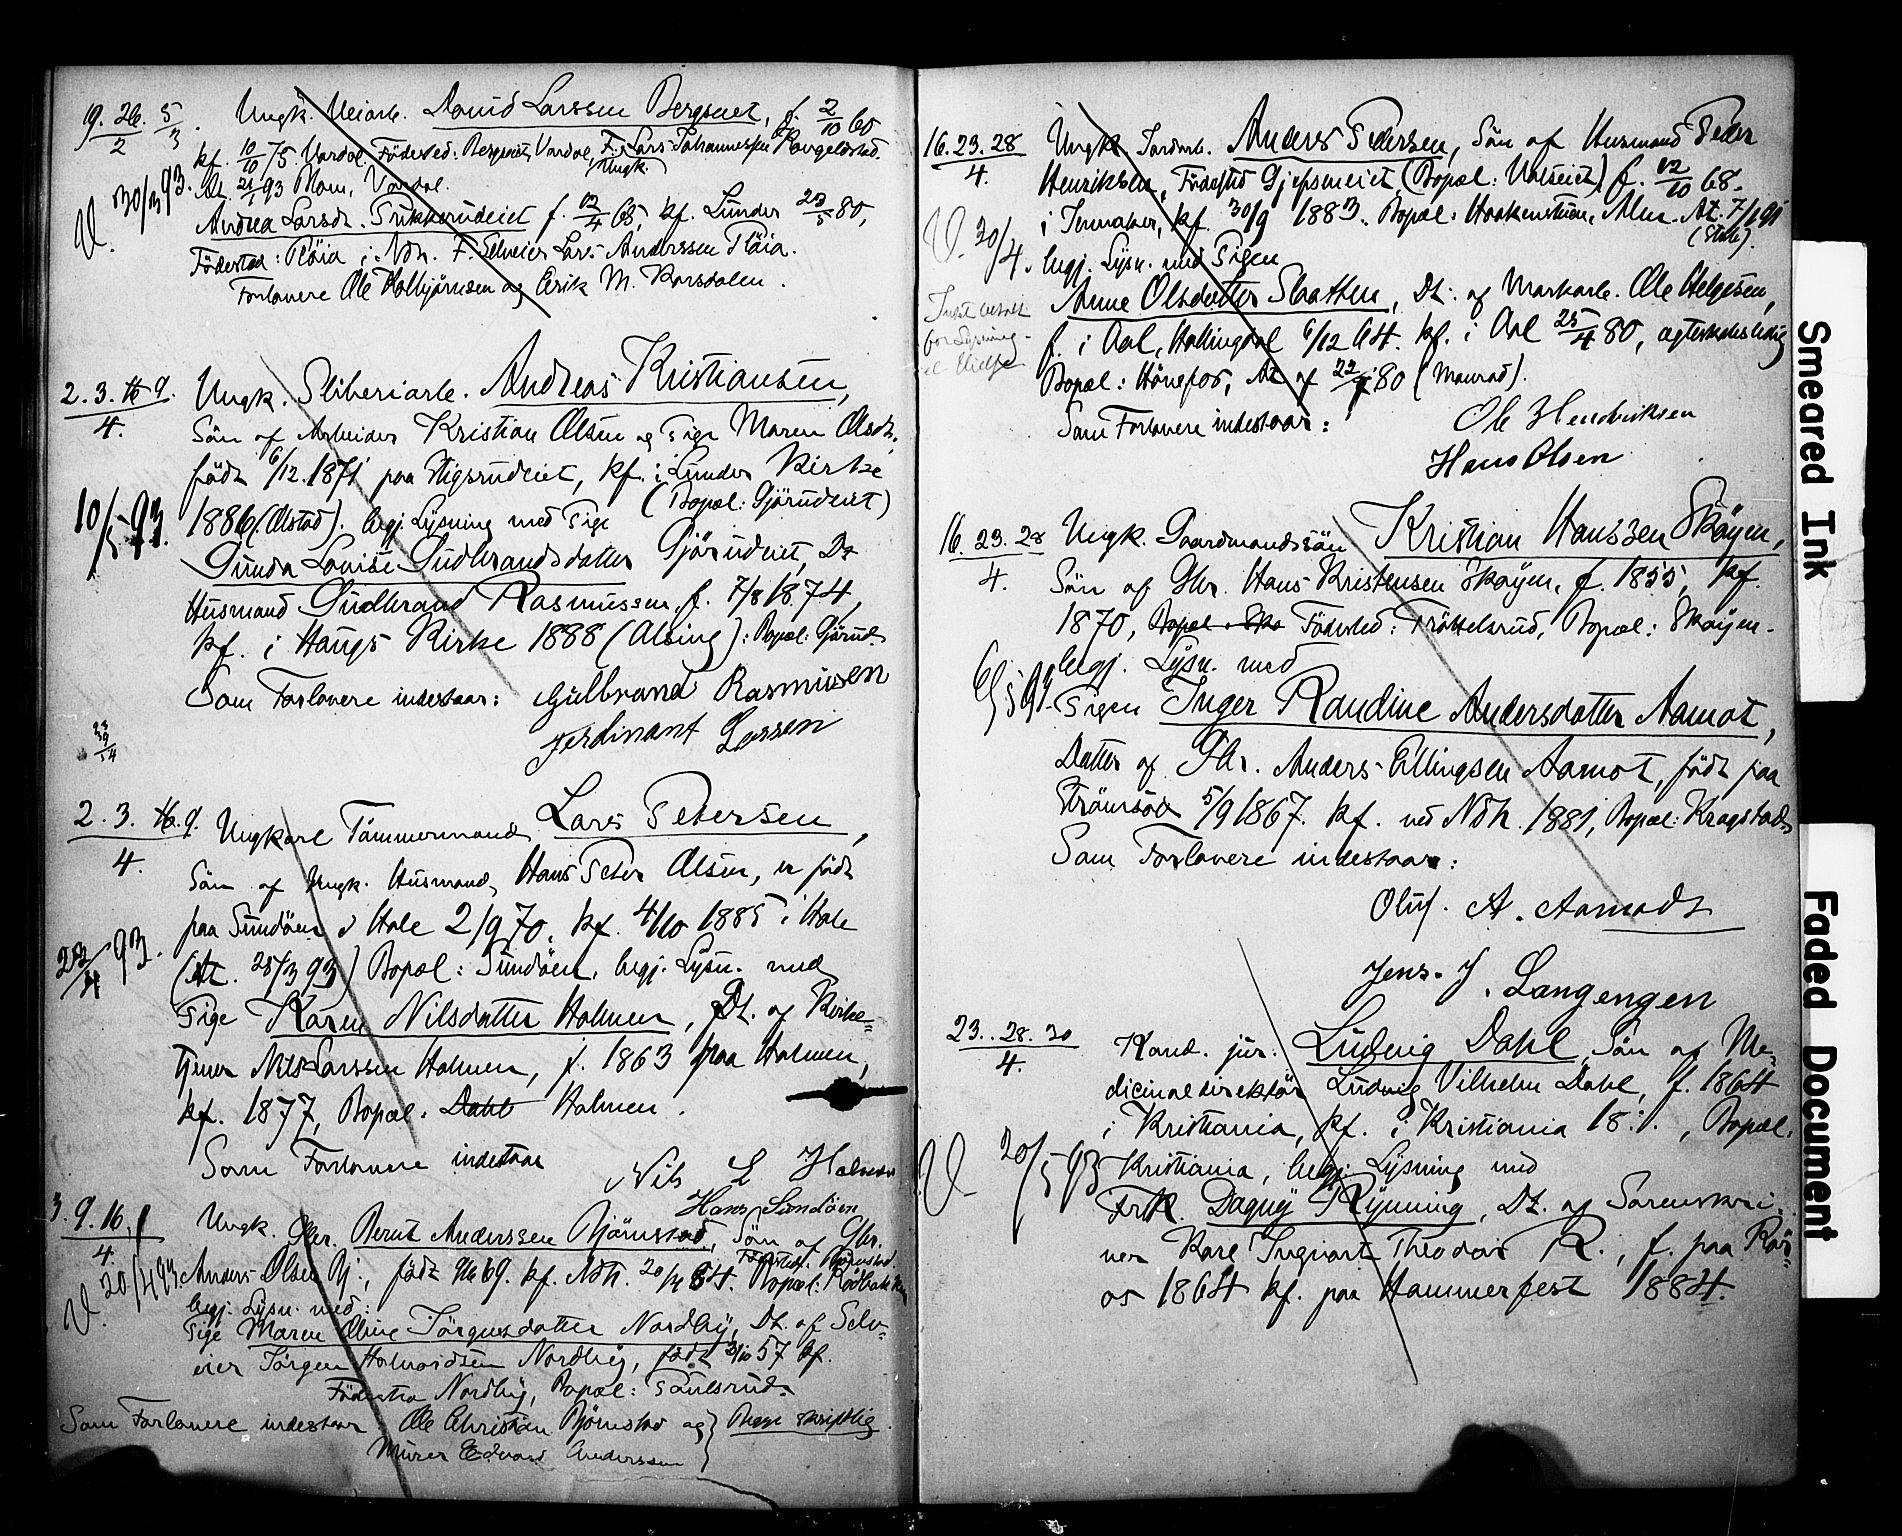 19. 26. 5/3.
2
Ungk. Veiarb. David Larssen Bergseiet, f. 2/10 60
kf. 10/10 75 Vardal. Födested: Bergseiet, Vardal, F.: Lars Johannessen
Ungk.
At. 21/1 93 Mom, Vardal.
V. 30/3 93.
Andrea Larsdt. f. 12/4 65, kf. Lunder 23/5 80,
Födested: Plöia i Ndh. F. Selveier Lars Anderssen Plöia.
Forlovere Ole Kolbjörnsen og Erik M. Karsdalen.
2. 3. 16 9.
4.
Ungk. Sliberiarb. Andreas Kristiansen,
Sön af Arbeider Kristian Olsen og Pige Maren Olsdt.
födt 6/12 1871 paa Stigsrudeiet, kf. i Lunder Kirke
1886 (Olstad). begj. Lysning med Pige (Bopæl: Gjörudeiet)
10/5-93.
Gunda Lovise Gudbrandsdatter Gjörudeiet, Dt
Husmand Gudbrand Rasmussen, f. 7/8 1874,
kf. i Haugs Kirke 1888 (Alsing): Bopæl: Gjörud.
Som Forlovere indestaar: Gulbrand Rasmusen
Ferdinant Larsen
2. 3. 16. 9.
4.
Ungkarl Tömmermand Lars Petersen,
Sön af Ungk. Husmand Hans Peter Olsen, er födt
paa Sundöen i Hole 2/9 70, kf. 4/10 1885 i Hole
(At. 28/3 93) Bopæl: Sundöen, begj. Lysn. med
23/4 93.
Pige Karen Nilsdatter Holmen, Dt. af Kirke-
tjener Nils Larssen Holmen, f. 1863 paa Holmen,
kf. 1877, Bopæl. Dahl Holmen.
Som Forlovere indestaar
Nils L Holmen
Hans Sundöen
3. 9. 16.
4.
Ungk. Gbr. Bernt Anderssen Björnstad, Sön af Gbr.
Födested: Björnstad.
Anders Olsen Bj., födt 69. kf. Ndh. 20/4 84. Bopæl: Rödbakken
V. 20/4 93
begj. Lysn. med:
Pige Maren Oline Jörgensdatter Nordby, Dt. af Selv-
eier Jörgen Halvordsen Nordby, födt 3/10 57 kf.
Födested Nordby, Bopæl: Paulsrud.
Som Forlovere indestaar Ole Christian Björnstad og } Begge skriftlig.
Murer Edvard Anderssen
16. 23. 28
4.
Ungk. Jordarb. Anders Pedersen, Sön af Husmand Peder
Henriksen, Födested Gjepsneiet, (Bopæl: Valseiet) f. 12/10 68.
i Jevnaker, kf. 30/9 1883. Bopæl: Haakenstuen, Alm. At. 7/1 91
(Stub).
V. 30/4.
begj. Lysn. med Pigen
Anne Olsdatter Slaatten, Dt. af Markarb. Ole Helgesen,
f. i Aal, Hallingdal 6/12 64. kf. i Aal 25/4 80, egteskabsledig
Intet betalt
for Lysning
el. Vielse
Bopæl: Hönefos, At. af 22/5 80 (Maurad).
Som Forlovere indestaar:
Ole Hendriksen
Hans Olsen
16. 23. 28
4.
Ungk. Gaardmandssön Kristian Hanssen Sköyen,
Sön af Gbr. Hans Kristensen Sköyen, f. 1855, kf.
1870, Bopæl Skö Födested: Tröttelsrud, Bopæl: Sköyen.
begj. Lysn. med
Pigen Inger Randine Andersdatter Aamot,
Datter af Gbr. Anders Ellingsen Aamot, födt paa
Strömsöd 5/9 1867. kf. ved Ndh. 1881, Bopæl: Kragstad.
Som Forlovere indestaar:
Oluf. A. Aamodt
Jens. J. Langengen
23. 28. 30
4.
Kand. jur. Ludvig Dahl, Sön af Me-
dicinaldirektör Ludvig Vilhelm Dahl, f. 1864
i Kristiania, kf. i Kristiania 18 : . , Bopæl.
V 20/5 93
Kristiania, begj. Lysning med
Frk. Dagny Rynning, Dt. af Sorenskri-
ver Karl Ingvart Theodor R., f. paa Rör-
os 1864 kf. paa Hammerfest 1884.
Smeared Ink
Faded Document